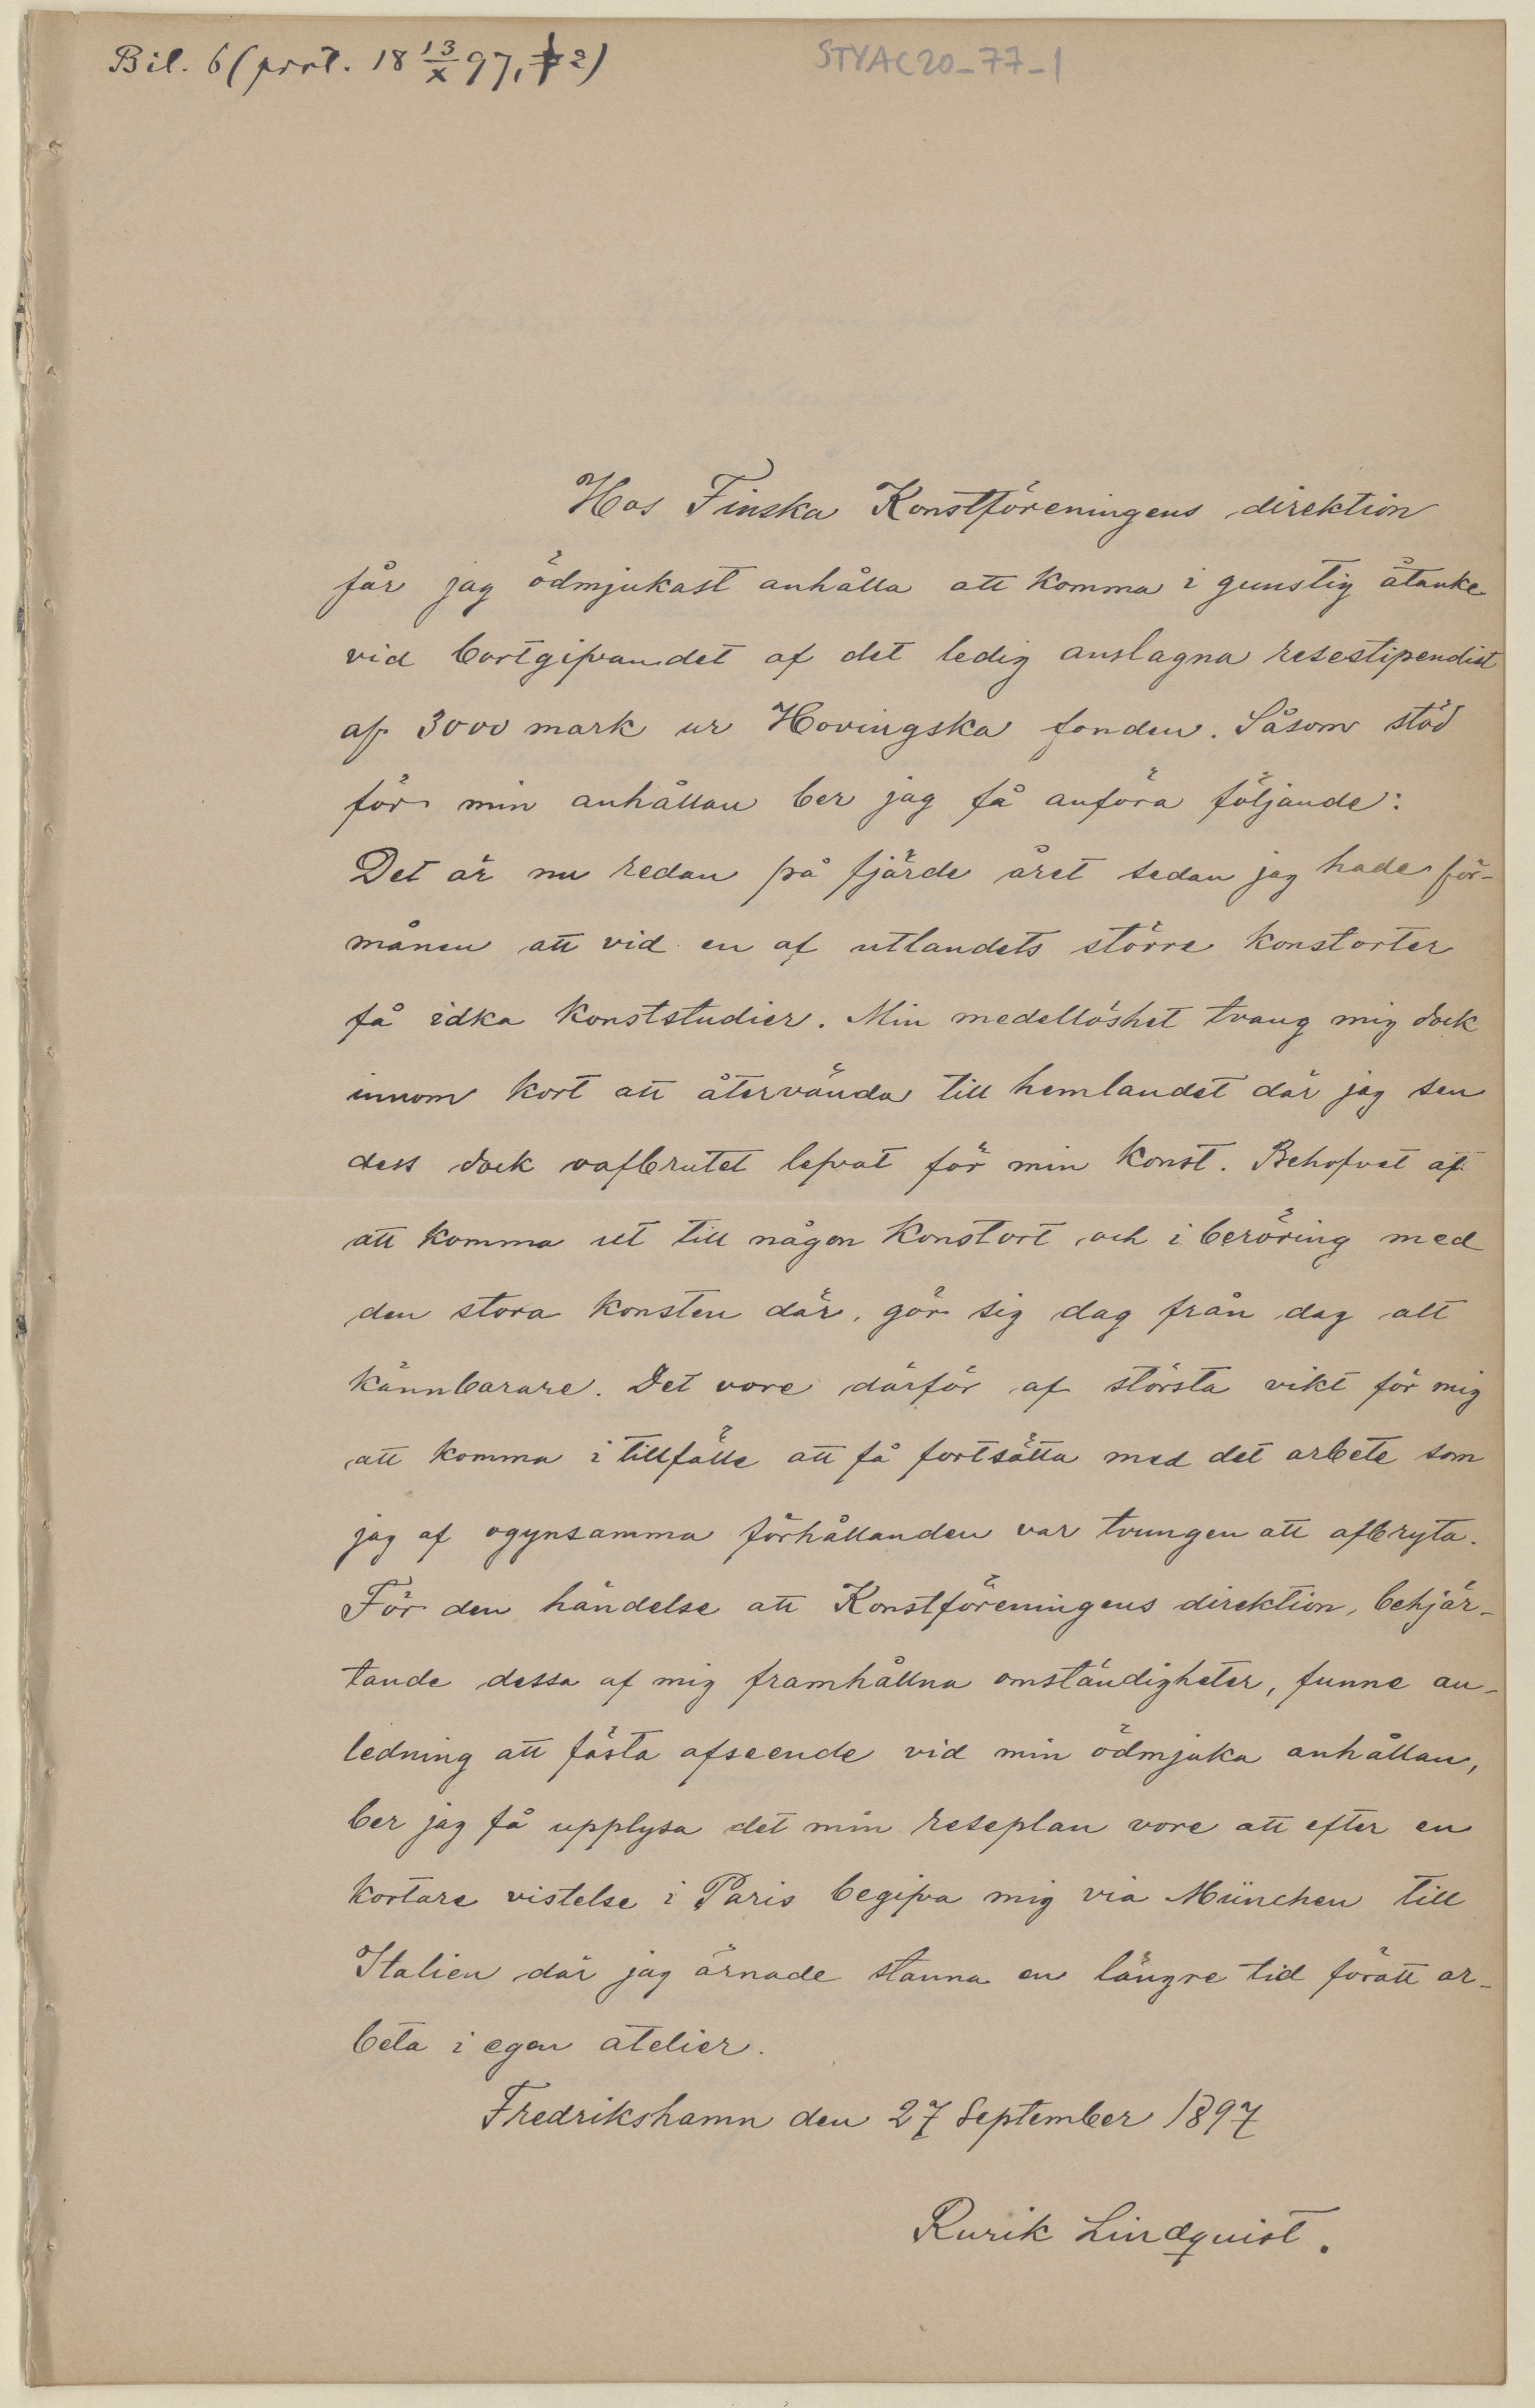 Bil. 6 (prot. 18 13/X 97, § 2)
STYAC20_77_1
Hos Finska Konstföreningens direktion
får jag ödmjukast anhålla att komma i gunstig åtanke
vid bortgifvandet af det ledig anslagna resestipendiet
af 3000 mark ur Hovingska fonden. Såsom stöd
för min anhållan ber jag få anföra följande:
Det är nu redan på fjärde året sedan jag hade för-
månen att vid en af utlandets större konstorter
få idka konststudier. Min medellöshet tvang mig dock
innom kort att återvända till hemlandet där jag sen
dess dock oafbrutet lefvat för min konst. Behofvet af
att komma ut till någon konstort och i beröring med
den stora konsten där, gör sig dag från dag allt
kännbarare. Det vore därför af största vikt för mig
att komma i tillfälle att få fortsätta med det arbete som
jag af ogynsamma förhållanden var tvungen att afbryta.
För den händelse att Konstföreningens direktion, behjär-
tande dessa af mig framhållna omständigheter, funne an-
ledning att fästa afseende vid min ödmjuka anhållan,
ber jag få upplysa det min reseplan vore att efter en
kortare vistelse i Paris begifva mig via München till
Italien där jag ärnade stanna en längre tid föratt ar-
beta i egen atelier.
Fredrikshamn den 27 September 1897
Rurik Lindquist.